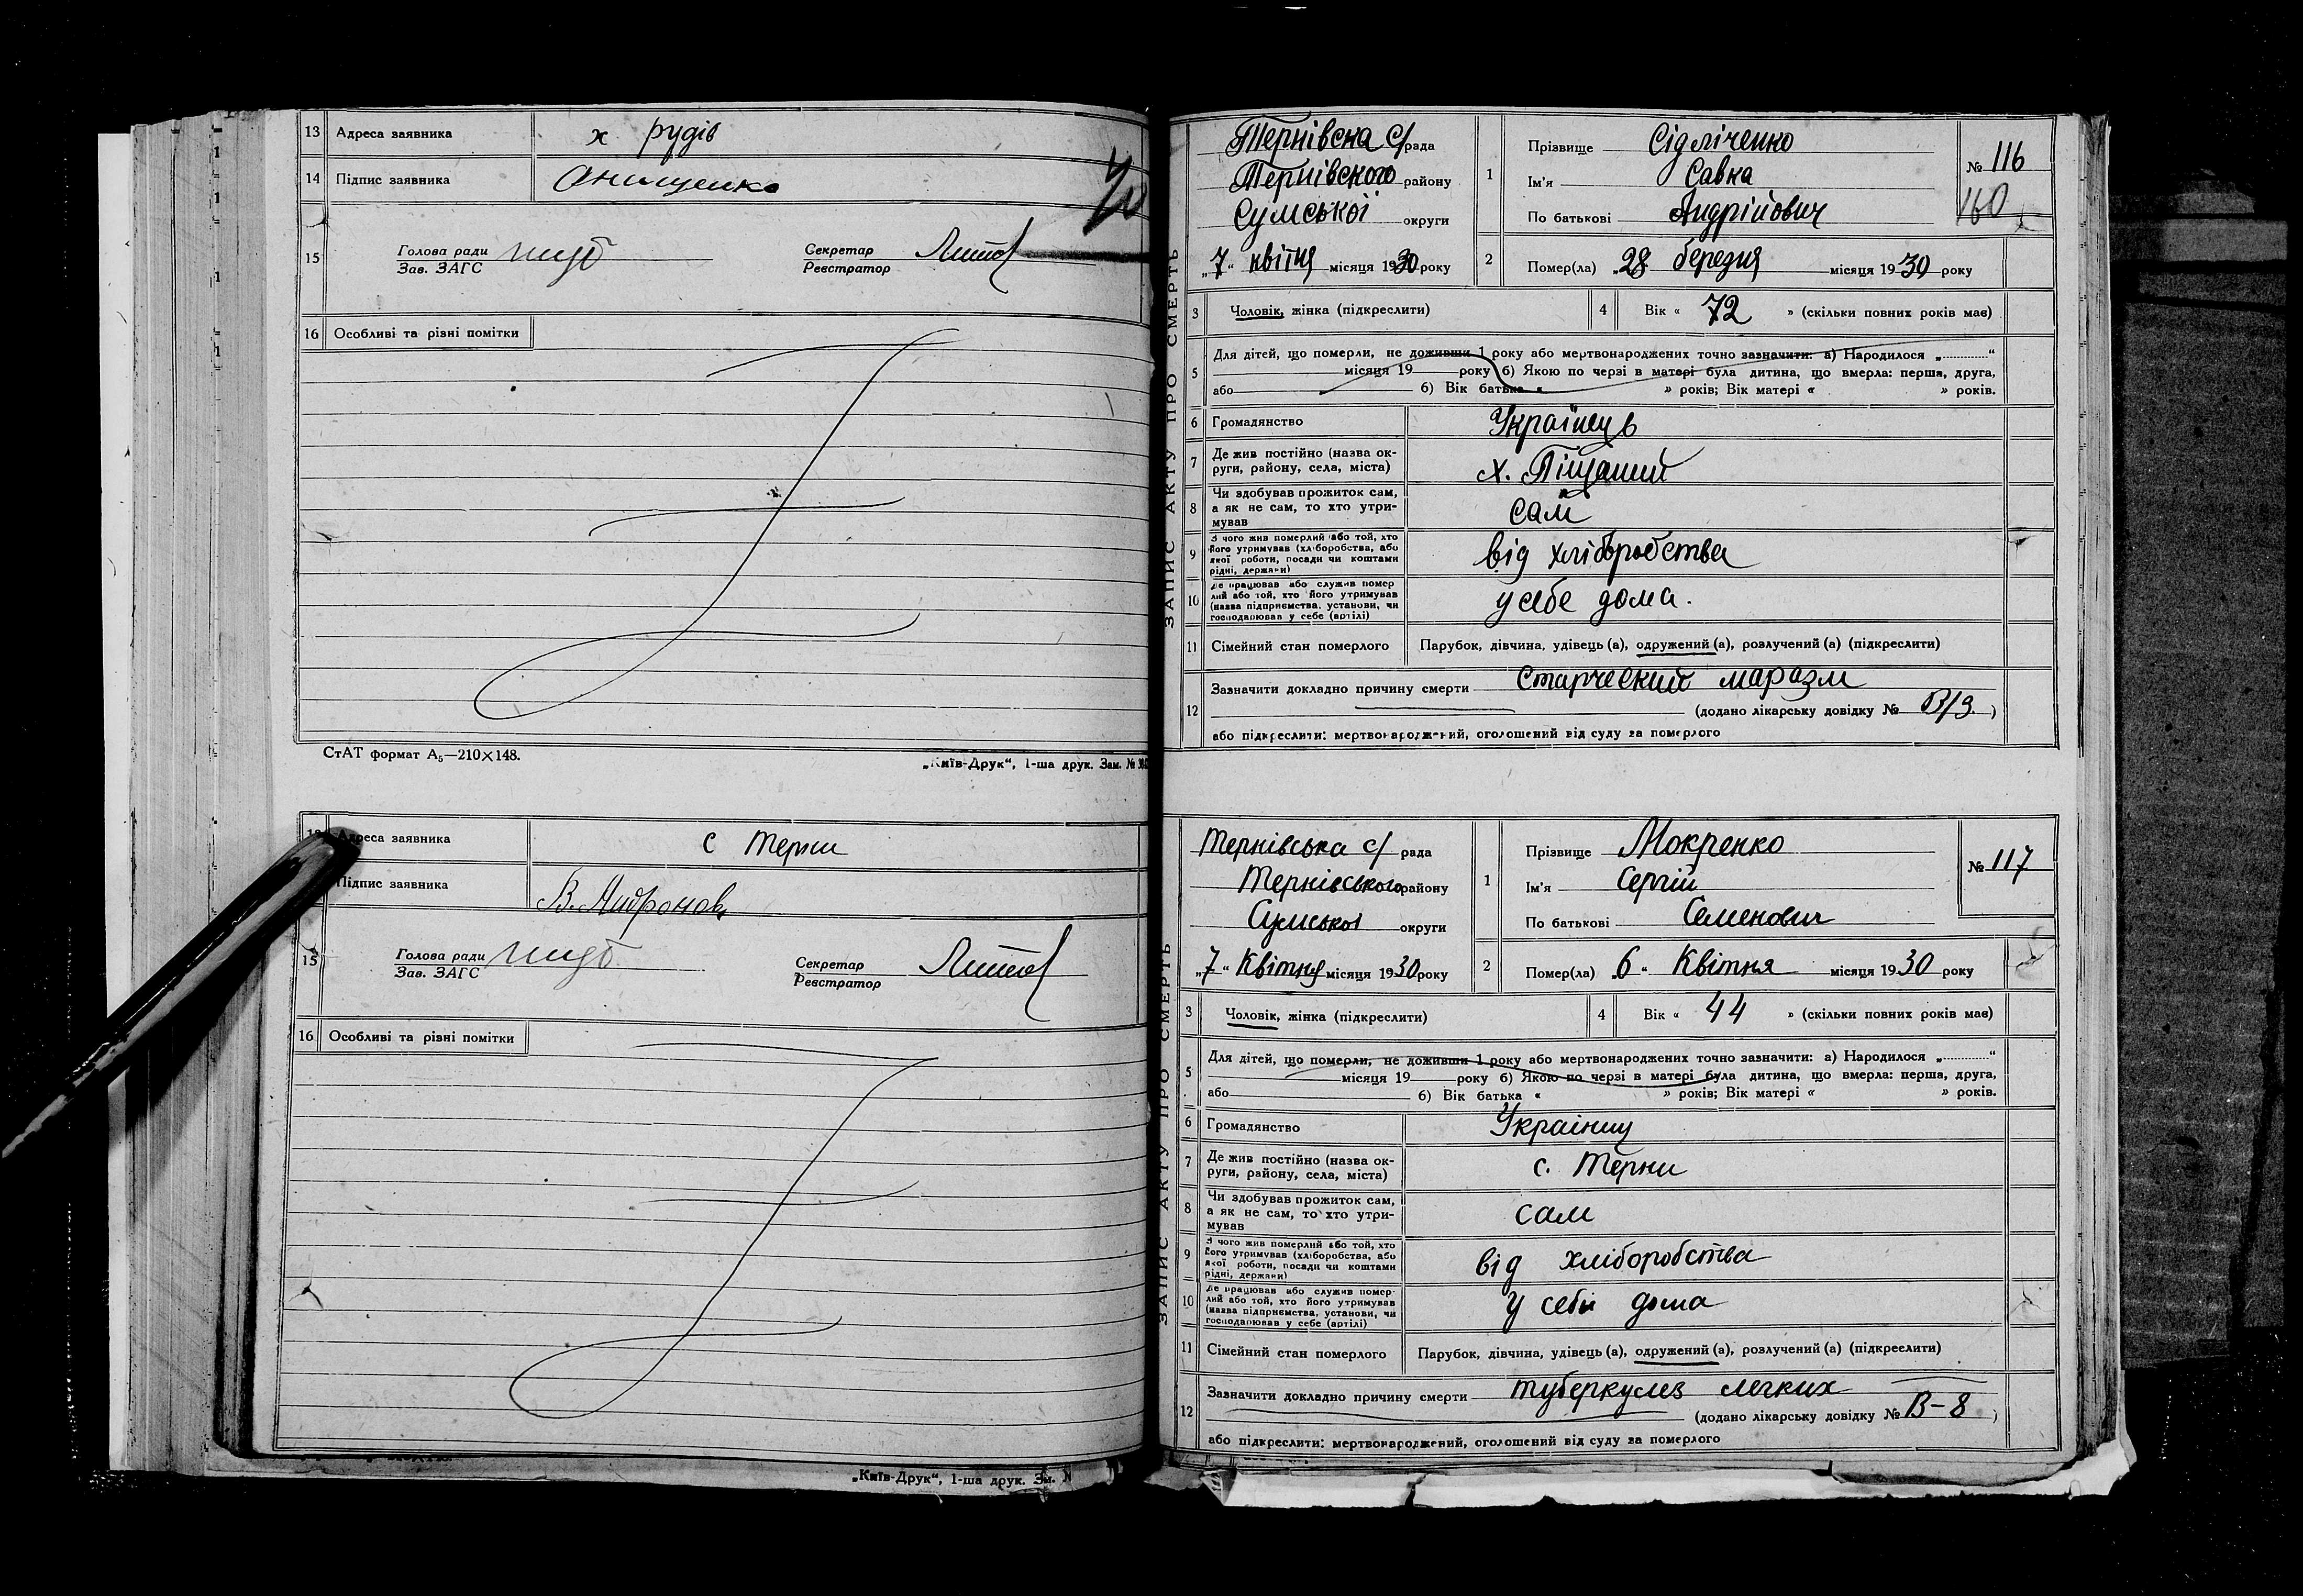 13 Адреса заявника х рудів
14 Підпис заявника Онищенко
15 Голова ради
Зав. ЗАГС
Секретар
Реєстратор
16 Особливі та різні помітки
СтАТ формат А5—210×148.
„Київ-Друк“, 1-ша друк. Зам. №
Адреса заявника с Терни
Підпис заявника
15 Голова ради
Зав. ЗАГС
Секретар
Реєстратор
16 Особливі та різні помітки
„Київ-Друк“, 1-ша друк. Зм. №
ЗАПИС АКТУ ПРО СМЕРТЬ
Тернівсна С/рада
Тернівського району
Сумської округи
„7“ квітня місяця 1930 року
1 Прізвище Сідліченко
Ім'я Савка
По батькові Андрійович
№ 116
160
2 Помер(ла) „28 березня місяця 1930 року
3 Чоловік, жінка (підкреслити)
4 Вік « 72 » (скільки повних років мав)
5 Для дітей, що померли, не доживши 1 року або мертвонароджених точно зазначити: а) Народилося „............“
місяця 19 року б) Якою по черзі в матері була дитина, що вмерла: перша, друга,
або б) Вік батька « » років; Вік матері « » років.
6 Громадянство Українець
7 Де жив постійно (назва ок-
руги, району, села, міста) х. Піщаний
8 Чи здобував прожиток сам,
а як не сам, то хто утри-
мував сам
9 З чого жив померлий або той, хто
його утримував (хліборобства, або
якої роботи, посади чи коштами
рідні, держави) від хліборобства
10 Де працював або служив помер
лий або той, хто його утримував
(назва підприємства, установи, чи
господарював у себе (артілі) у себе дома.
11 Сімейний стан померлого Парубок, дівчина, удівець(а), одружений(а), розлучений(а) (підкреслити)
12 Зазначити докладно причину смерти Старческий маразм
(додано лікарську довідку № В/9.)
або підкреслити: мертвонароджений, оголошений від суду за померлого
ЗАПИС АКТУ ПРО СМЕРТЬ
Тернівська с/ рада
Тернівського району
Сумської округи
„7“ Квітня місяця 1930 року
1 Прізвище Мокренко
Ім'я Сергій
По батькові Семенович
№ 117
2 Помер(ла) „6“ Квітня місяця 1930 року
3 Чоловік, жінка (підкреслити)
4 Вік « 44 » (скільки повних років мав)
5 Для дітей, що померли, не доживши 1 року або мертвонароджених точно зазначити: а) Народилося „............“
місяця 19 року б) Якою по черзі в матері була дитина, що вмерла: перша, друга,
або б) Вік батька « » років; Вік матері « » років.
6 Громадянство Українец
7 Де жив постійно (назва ок-
руги, району, села, міста) с. Терни
8 Чи здобував прожиток сам,
а як не сам, то хто утри-
мував сам
9 З чого жив померлий або той, хто
його утримував (хліборобства, або
якої роботи, посади чи коштами
рідні, держави) від хліборобства
10 Де працював або служив помер-
лий або той, хто його утримував
(назва підприємства, установи, чи
господарював у себе (артілі) у себе дома
11 Сімейний стан померлого Парубок, дівчина, удівець(а), одружений(а), розлучений(а) (підкреслити)
12 Зазначити докладно причину смерти туберкулез легких
(додано лікарську довідку № В-8)
або підкреслити: мертвонароджений, оголошений від суду за померлого